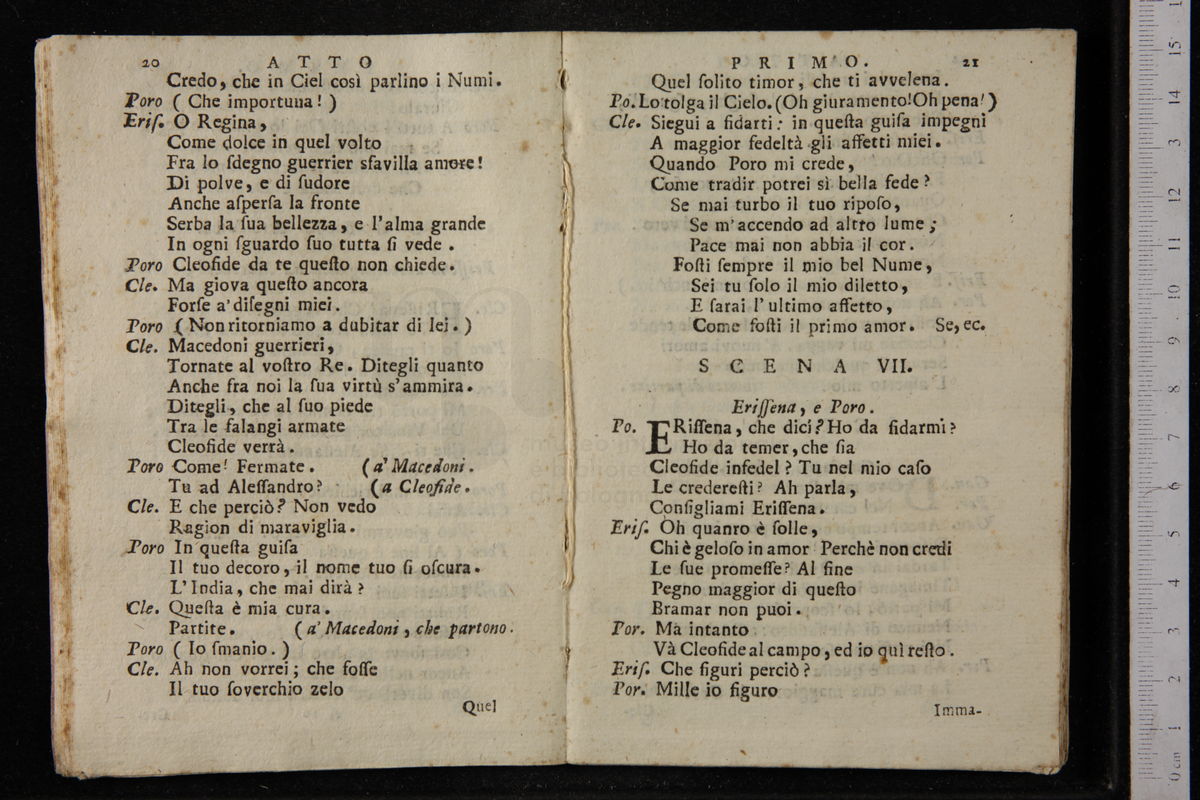 20 ATTO
Credo, che in Ciel così parlino i Numi.
Poro ( Che importuna! )
Eriſ. O Regina,
Come dolce in quel volto
Fra lo ſdegno guerrier sfavilla amore!
Di polve, e di ſudore
Anche aſperſa la fronte
Serba la ſua bellezza, e l'alma grande
In ogni ſguardo ſuo tutta ſi vede.
Poro Cleofide da te queſto non chiede.
Cle. Ma giova queſto ancora
Forſe a' diſegni miei.
Poro ( Non ritorniamo a dubitar di lei. )
Cle. Macedoni guerrieri,
Tornate al voſtro Re. Ditegli quanto
Anche fra noi la ſua virtù s'ammira.
Ditegli, che al ſuo piede
Tra le falangi armate
Cleofide verrà.
Poro Come! Fermate. (a' Macedoni.
Tu ad Aleſſandro? (a Cleofide.
Cle. E che perciò? Non vedo
Ragion di maraviglia.
Poro In queſta guiſa
Il tuo decoro, il nome tuo ſi oſcura.
L'India, che mai dirà?
Cle. Queſta è mia cura.
Partite. (a' Macedoni, che partono.
Poro ( Io ſmanio. )
Cle. Ah non vorrei; che foſſe
Il tuo ſoverchio zelo
Quel
PRIMO. 21
Quel ſolito timor, che ti avvelena.
Po. Lo tolga il Cielo. (Oh giuramento! Oh pena!)
Cle. Siegui a fidarti: in queſta guiſa impegni
A maggior fedeltà gli affetti miei.
Quando Poro mi crede,
Come tradir potrei sì bella fede?
Se mai turbo il tuo ripoſo,
Se m'accendo ad altro lume;
Pace mai non abbia il cor.
Foſti ſempre il mio bel Nume,
Sei tu ſolo il mio diletto,
E ſarai l'ultimo affetto,
Come foſti il primo amor. Se, ec.
SCENA VII.
Eriſſena, e Poro.
Po. ERiſſena, che dici? Ho da fidarmi?
Ho da temer, che ſia
Cleofide infedel? Tu nel mio caſo
Le crederesti? Ah parla,
Conſigliami Eriſſena.
Eriſ. Oh quanro è folle,
Chi è geloſo in amor Perchè non credi
Le ſue promeſſe? Al fine
Pegno maggior di queſto
Bramar non puoi.
Por. Mà intanto
Và Cleofide al campo, ed io quì reſto.
Eriſ. Che figuri perciò?
Por. Mille io figuro
Imma-